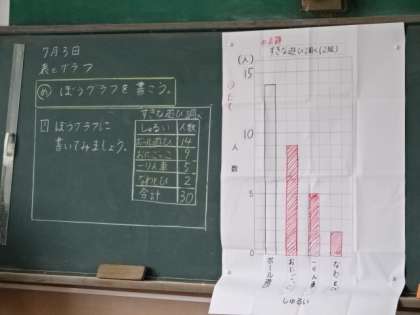 7月3日
表とグラフ
め ぼうグラフを書こう。
1 ぼうグラフに
書いてみましょう。
すきな遊び調べ
しゅるい 人数
ボール遊び 14
おにごっこ 9
一りん車 5
なわとび 2
合計 30
すきな遊び調べ(2組)
(人)
15
10
5
0
人数
ボール遊び
おにごっこ
一りん車
なわとび
しゅるい